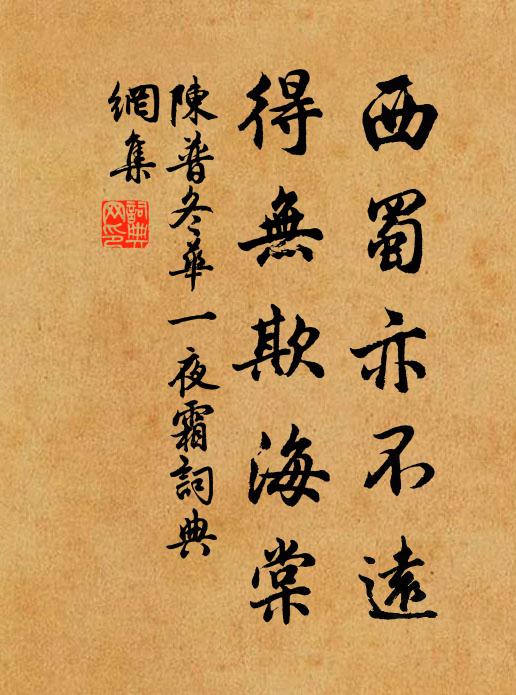 西蜀亦不遠
得無欺海棠
陳普冬華一夜霜詞典
網集
詞典
网印